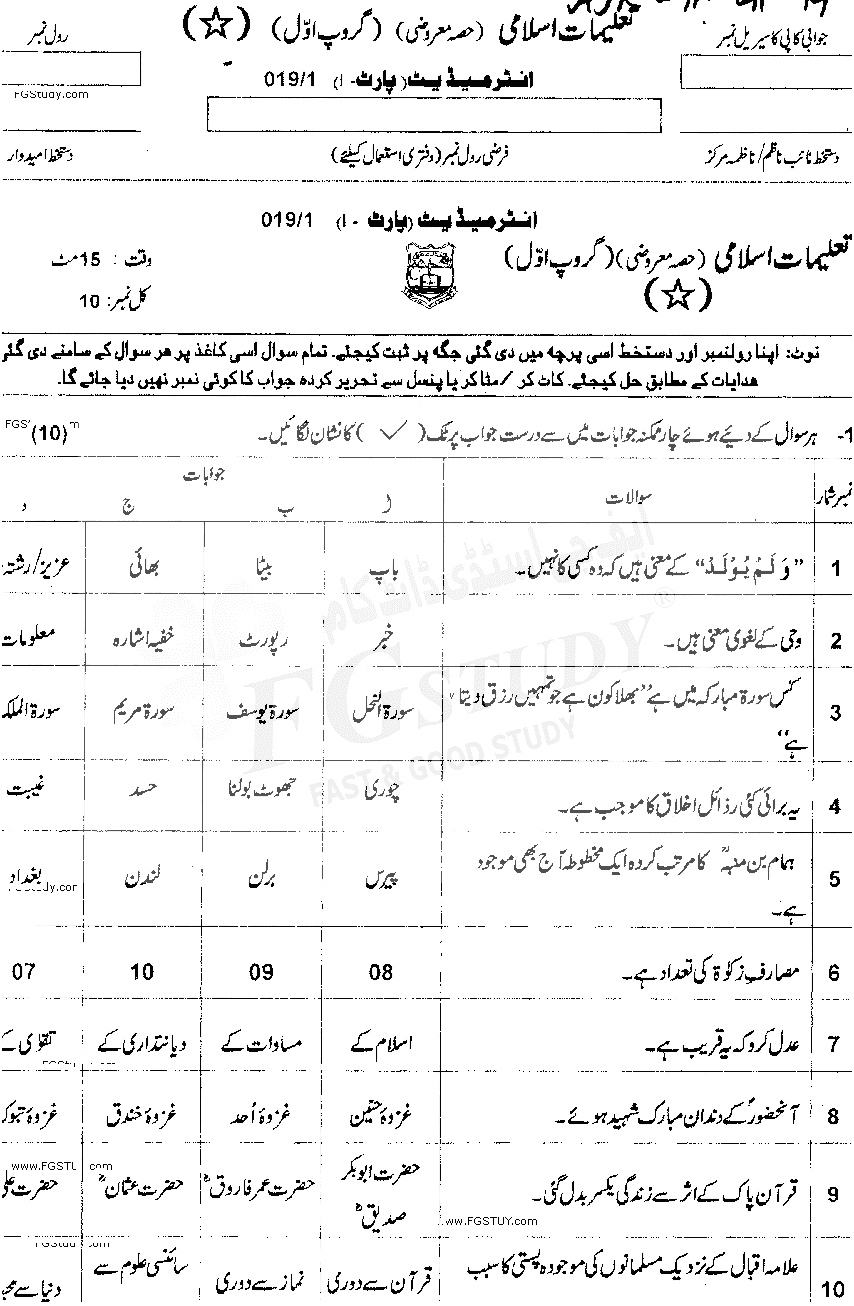 جوابی کاپی کا سیریل نمبر تعلیمات اسلامی (حصہ معروضی) (گروپ اوّل) (☆) رول نمبر
انٹرمیڈیٹ (پارٹ - I) 019/1
FGStudy.com
دستخط نائب ناظم/ناظمہ مرکز فرضی رول نمبر (دفتری استعمال کیلئے) دستخط امیدوار
انٹرمیڈیٹ (پارٹ - I) 019/1
تعلیمات اسلامی (حصہ معروضی) (گروپ اوّل) وقت : 15 منٹ
(☆) کل نمبر: 10
نوٹ: اپنا رولنمبر اور دستخط اسی پرچہ میں دی گئی جگہ پر ثبت کیجئے۔ تمام سوال اسی کاغذ پر ھر سوال کے سامنے دی گئی
ھدایات کے مطابق حل کیجئے۔ کاٹ کر / مٹا کر یا پنسل سے تحریر کردہ جواب کا کوئی نمبر نہیں دیا جائے گا۔
1- ہر سوال کے دیئے ہوئے چار ممکنہ جوابات میں سے درست جواب پر ٹک ( ✓ ) کا نشان لگائیں۔ (10)
جوابات
نمبر شمار سوالات ا ب ج د
1 ”وَلَمْ يُوْلَدْ“ کے معنی ہیں کہ وہ کسی کا نہیں۔ باپ بیٹا بھائی عزیز/رشتہ
2 وحی کے لغوی معنی ہیں۔ خبر رپورٹ خفیہ اشارہ معلومات
3 کس سورۃ مبارکہ میں ہے ”بھلا کون ہے جو تمہیں رزق دیتا سورۃ النحل سورۃ یوسف سورۃ مریم سورۃ الملک
ہے“
4 یہ برائی کئی رذائل اخلاق کا موجب ہے۔ چوری جھوٹ بولنا حسد غیبت
5 ہمام بن منبہؒ کا مرتب کردہ ایک مخطوطہ آج بھی موجود پیرس برلن لندن بغداد
ہے۔
6 مصارفِ زکوٰۃ کی تعداد ہے۔ 08 09 10 07
7 عدل کرو کہ یہ قریب ہے۔ اسلام کے مساوات کے دیانتداری کے تقویٰ کے
8 آنحضورؐ کے دندان مبارک شہید ہوئے۔ غزوۂ حنین غزوۂ اُحد غزوۂ خندق غزوۂ تبوک
9 قرآن پاک کے اثر سے زندگی یکسر بدل گئی۔ حضرت ابوبکر صدیقؓ حضرت عمر فاروقؓ حضرت عثمانؓ حضرت علی
10 علامہ اقبال کے نزدیک مسلمانوں کی موجودہ پستی کا سبب قرآن سے دوری نماز سے دوری سائنسی علوم سے دنیا سے
ایف جی اسٹڈی ڈاٹ کام
FG STUDY ®
FAST & GOOD STUDY